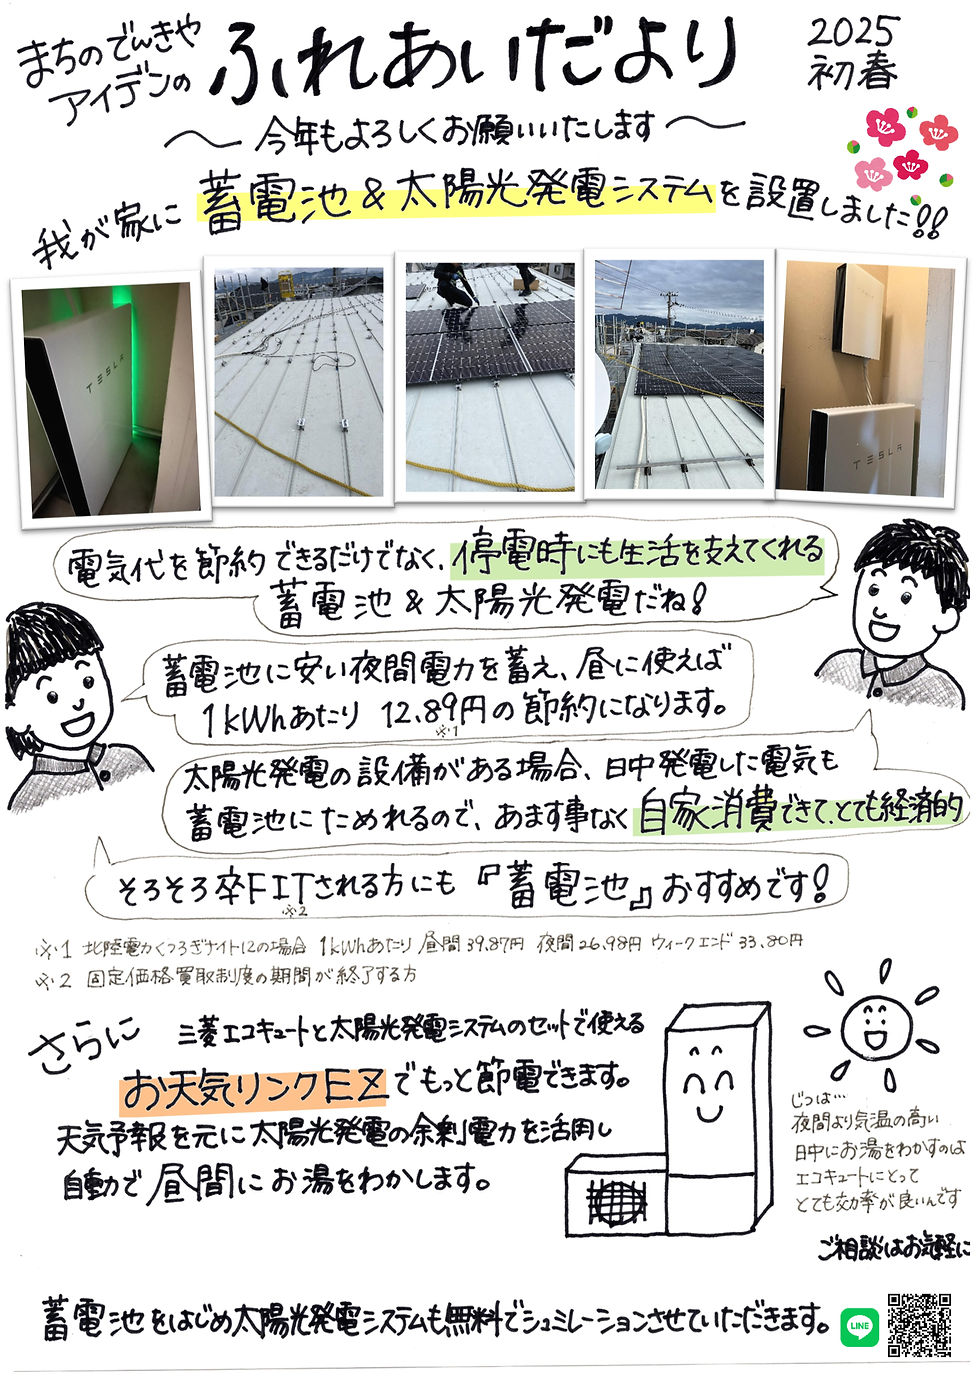 まちのでんきや
アイデンの
ふれあいだより
2025
初春
～今年もよろしくお願いいたします～
我が家に 蓄電池&太陽光発電システムを設置しました!!
TESLA
TESLA
電気代を節約できるだけでなく、停電時にも生活を支えてくれる
蓄電池&太陽光発電だね!
蓄電池に安い夜間電力を蓄え、昼に使えば
1kWhあたり 12.89円の節約になります。
※1
太陽光発電の設備がある場合、日中発電した電気も
蓄電池にためれるので、あます事なく自家消費できて、とても経済的
そろそろ卒FITされる方にも『蓄電池』おすすめです!
※2
※1 北陸電力くつろぎナイト12の場合 1kWhあたり 昼間39.87円 夜間26.98円 ウィークエンド33.80円
※2 固定価格買取制度の期間が終了する方
さらに
三菱エコキュートと太陽光発電システムのセットで使える
お天気リンクEZでもっと節電できます。
天気予報を元に太陽光発電の余剰電力を活用し
自動で昼間にお湯をわかします。
じつは…
夜間より気温の高い
日中にお湯をわかすのは
エコキュートにとって
とても効率が良いんです
ご相談はお気軽に
蓄電池をはじめ太陽光発電システムも無料でシュミレーションさせていただきます。
LINE